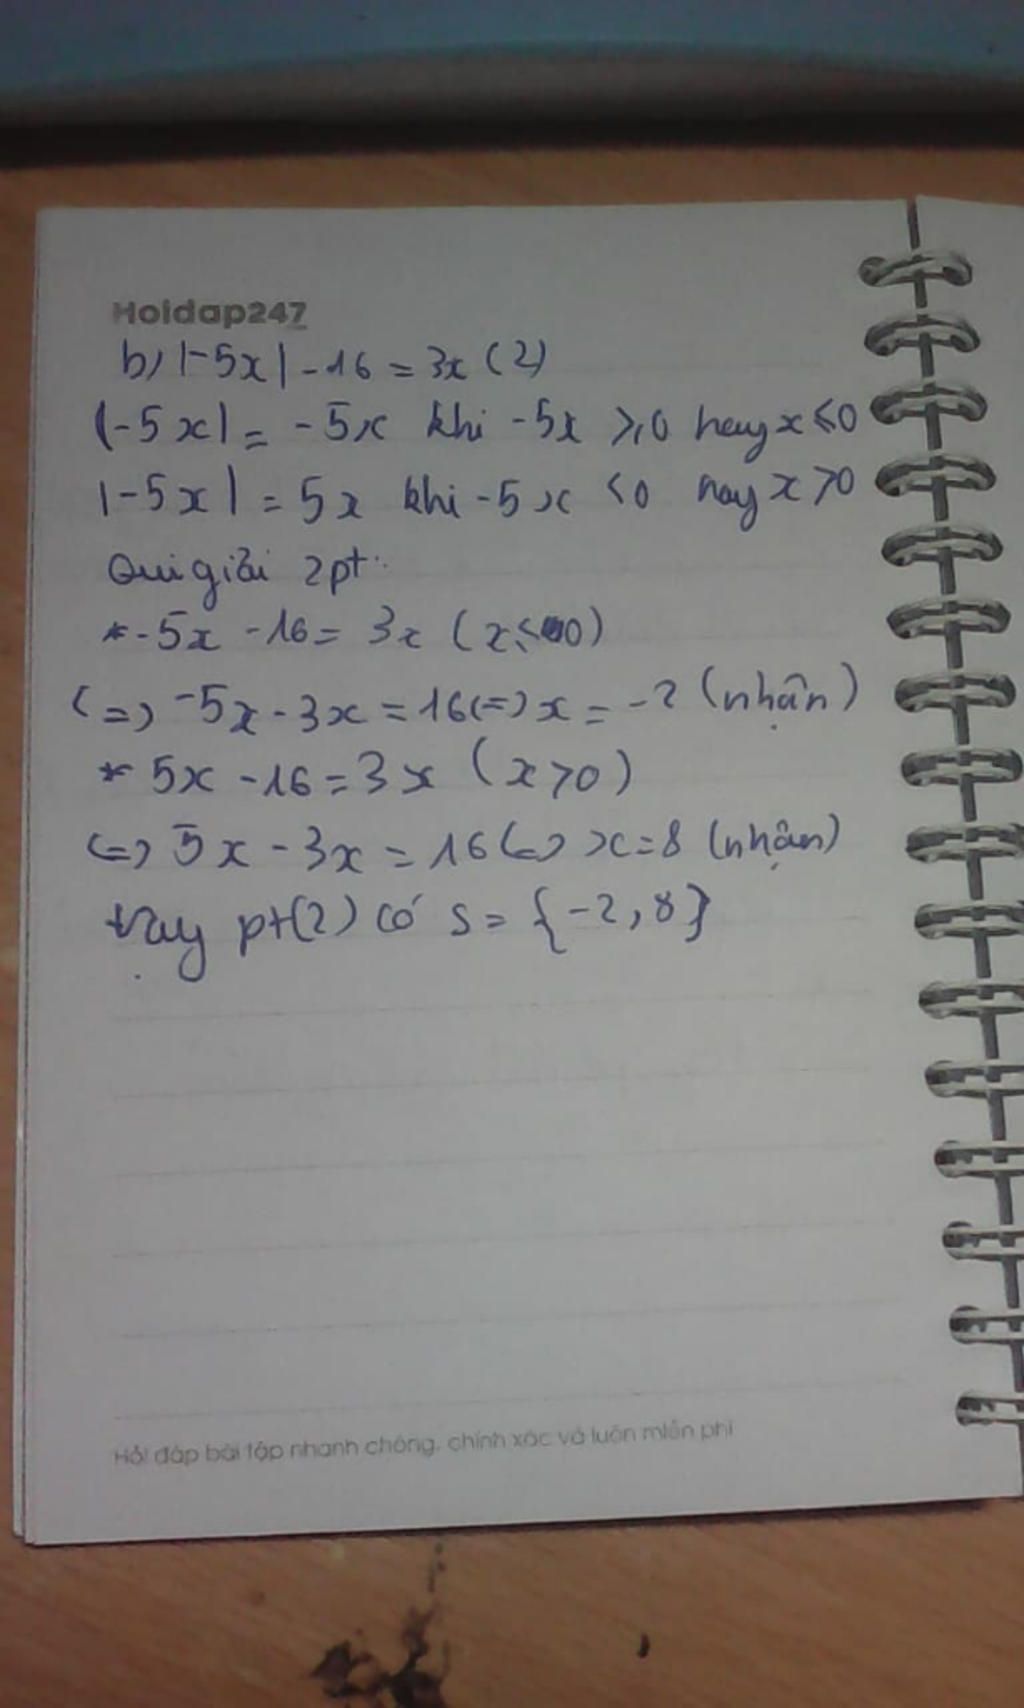 Hoidap247
b) |-5x| - 16 = 3x (2)
|-5x| = -5x khi -5x ≥ 0 hay x ≤ 0
|-5x| = 5x khi -5x < 0 hay x > 0
Qui giải 2pt:
* -5x - 16 = 3x (x ≤ 0)
(=) -5x - 3x = 16 (=) x = -2 (nhận)
* 5x - 16 = 3x (x > 0)
(=) 5x - 3x = 16 (=) x = 8 (nhận)
Vậy pt(2) có S = {-2, 8}
Hỏi đáp bài tập nhanh chóng, chính xác và luôn miễn phí